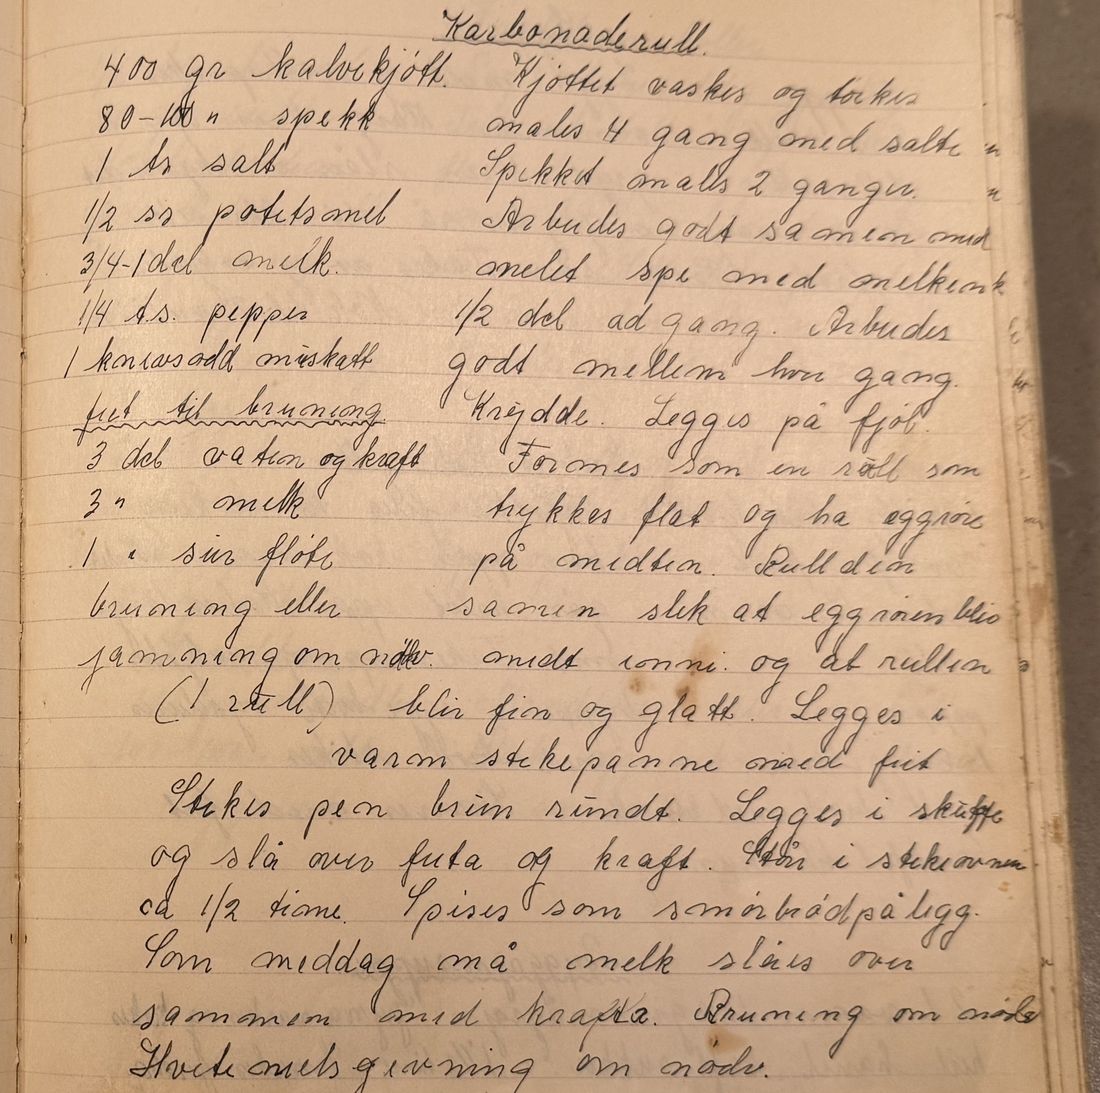 Karbonaderull.
400 gr kalvekjøtt. Kjøttet vaskes og tørkes
80-100 " spekk males 4 gang med salte
1 ts salt Spekket males 2 ganger.
1/2 ss potetsmel Arbeides godt samen med
3/4-1 del melk. melet spe med melken
1/4 t.s. pepper 1/2 del ad gang. Arbeides
1 knivsodd muskatt godt mellem hver gang.
fett til bruning Krydde. Legges på fjøl.
3 del vatten og kraft Formes som en rull som
3 " melk trykkes flat og ha eggrøre
1 " sur fløte på midten. Rull den
bruning eller samen slik at eggrøren blir
jamning om nødv. midt inni. og at rullen
(1 rull) blir fin og glatt. Legges i
varm stekepanne med fett
Stekes pen brun rundt. Legges i skuffe
og slå over feta og kraft. Står i stekeovnen
ca 1/2 time. Spises som smørbrødpålegg.
Som meddag må melk slåes over
sammen med krafta. Bruning om nødv
Hvetemelsjevning om nødv.